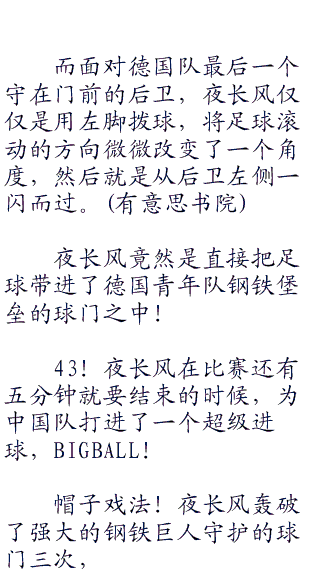 而面对德国队最后一个
守在门前的后卫，夜长风仅
仅是用左脚拨球，将足球滚
动的方向微微改变了一个角
度，然后就是从后卫左侧一
闪而过。(有意思书院)
夜长风竟然是直接把足
球带进了德国青年队钢铁堡
垒的球门之中！
43！夜长风在比赛还有
五分钟就要结束的时候，为
中国队打进了一个超级进
球，BIGBALL！
帽子戏法！夜长风轰破
了强大的钢铁巨人守护的球
门三次，